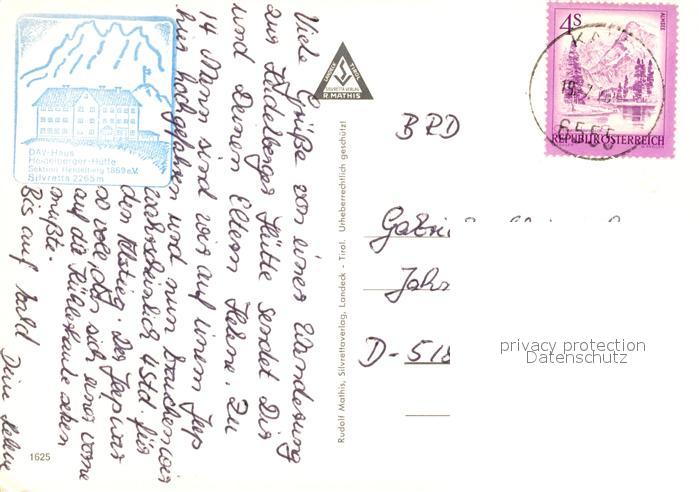 DAV-Haus
Heidelberger-Hütte
Sektion Heidelberg 1869 e.V.
Silvretta 2265m
Viele Grüße von einer Wanderung
zur Heidelberger Hütte sendet Dir
und Deinen Eltern Helene. Zu
14 Mann sind wir auf einem Jeep
hier hochgefahren und nun brauchen wir
wahrscheinlich 4 Std. für
den Abstieg. Der Jeep war
so voll, daß sich einer vorne
auf die Kühlerhaube setzen
mußte.
Bis auf bald Deine Helene
1625
LANDECK TIROL
SILVRETTA VERLAG
R. MATHIS
Rudolf Mathis, Silvrettaverlag, Landeck - Tirol. Urheberrechtlich geschützt!
4S
ALMSEE
REPUBLIK ÖSTERREICH
6555
BRD
Gabri
Jahn
D-518
privacy protection
Datenschutz